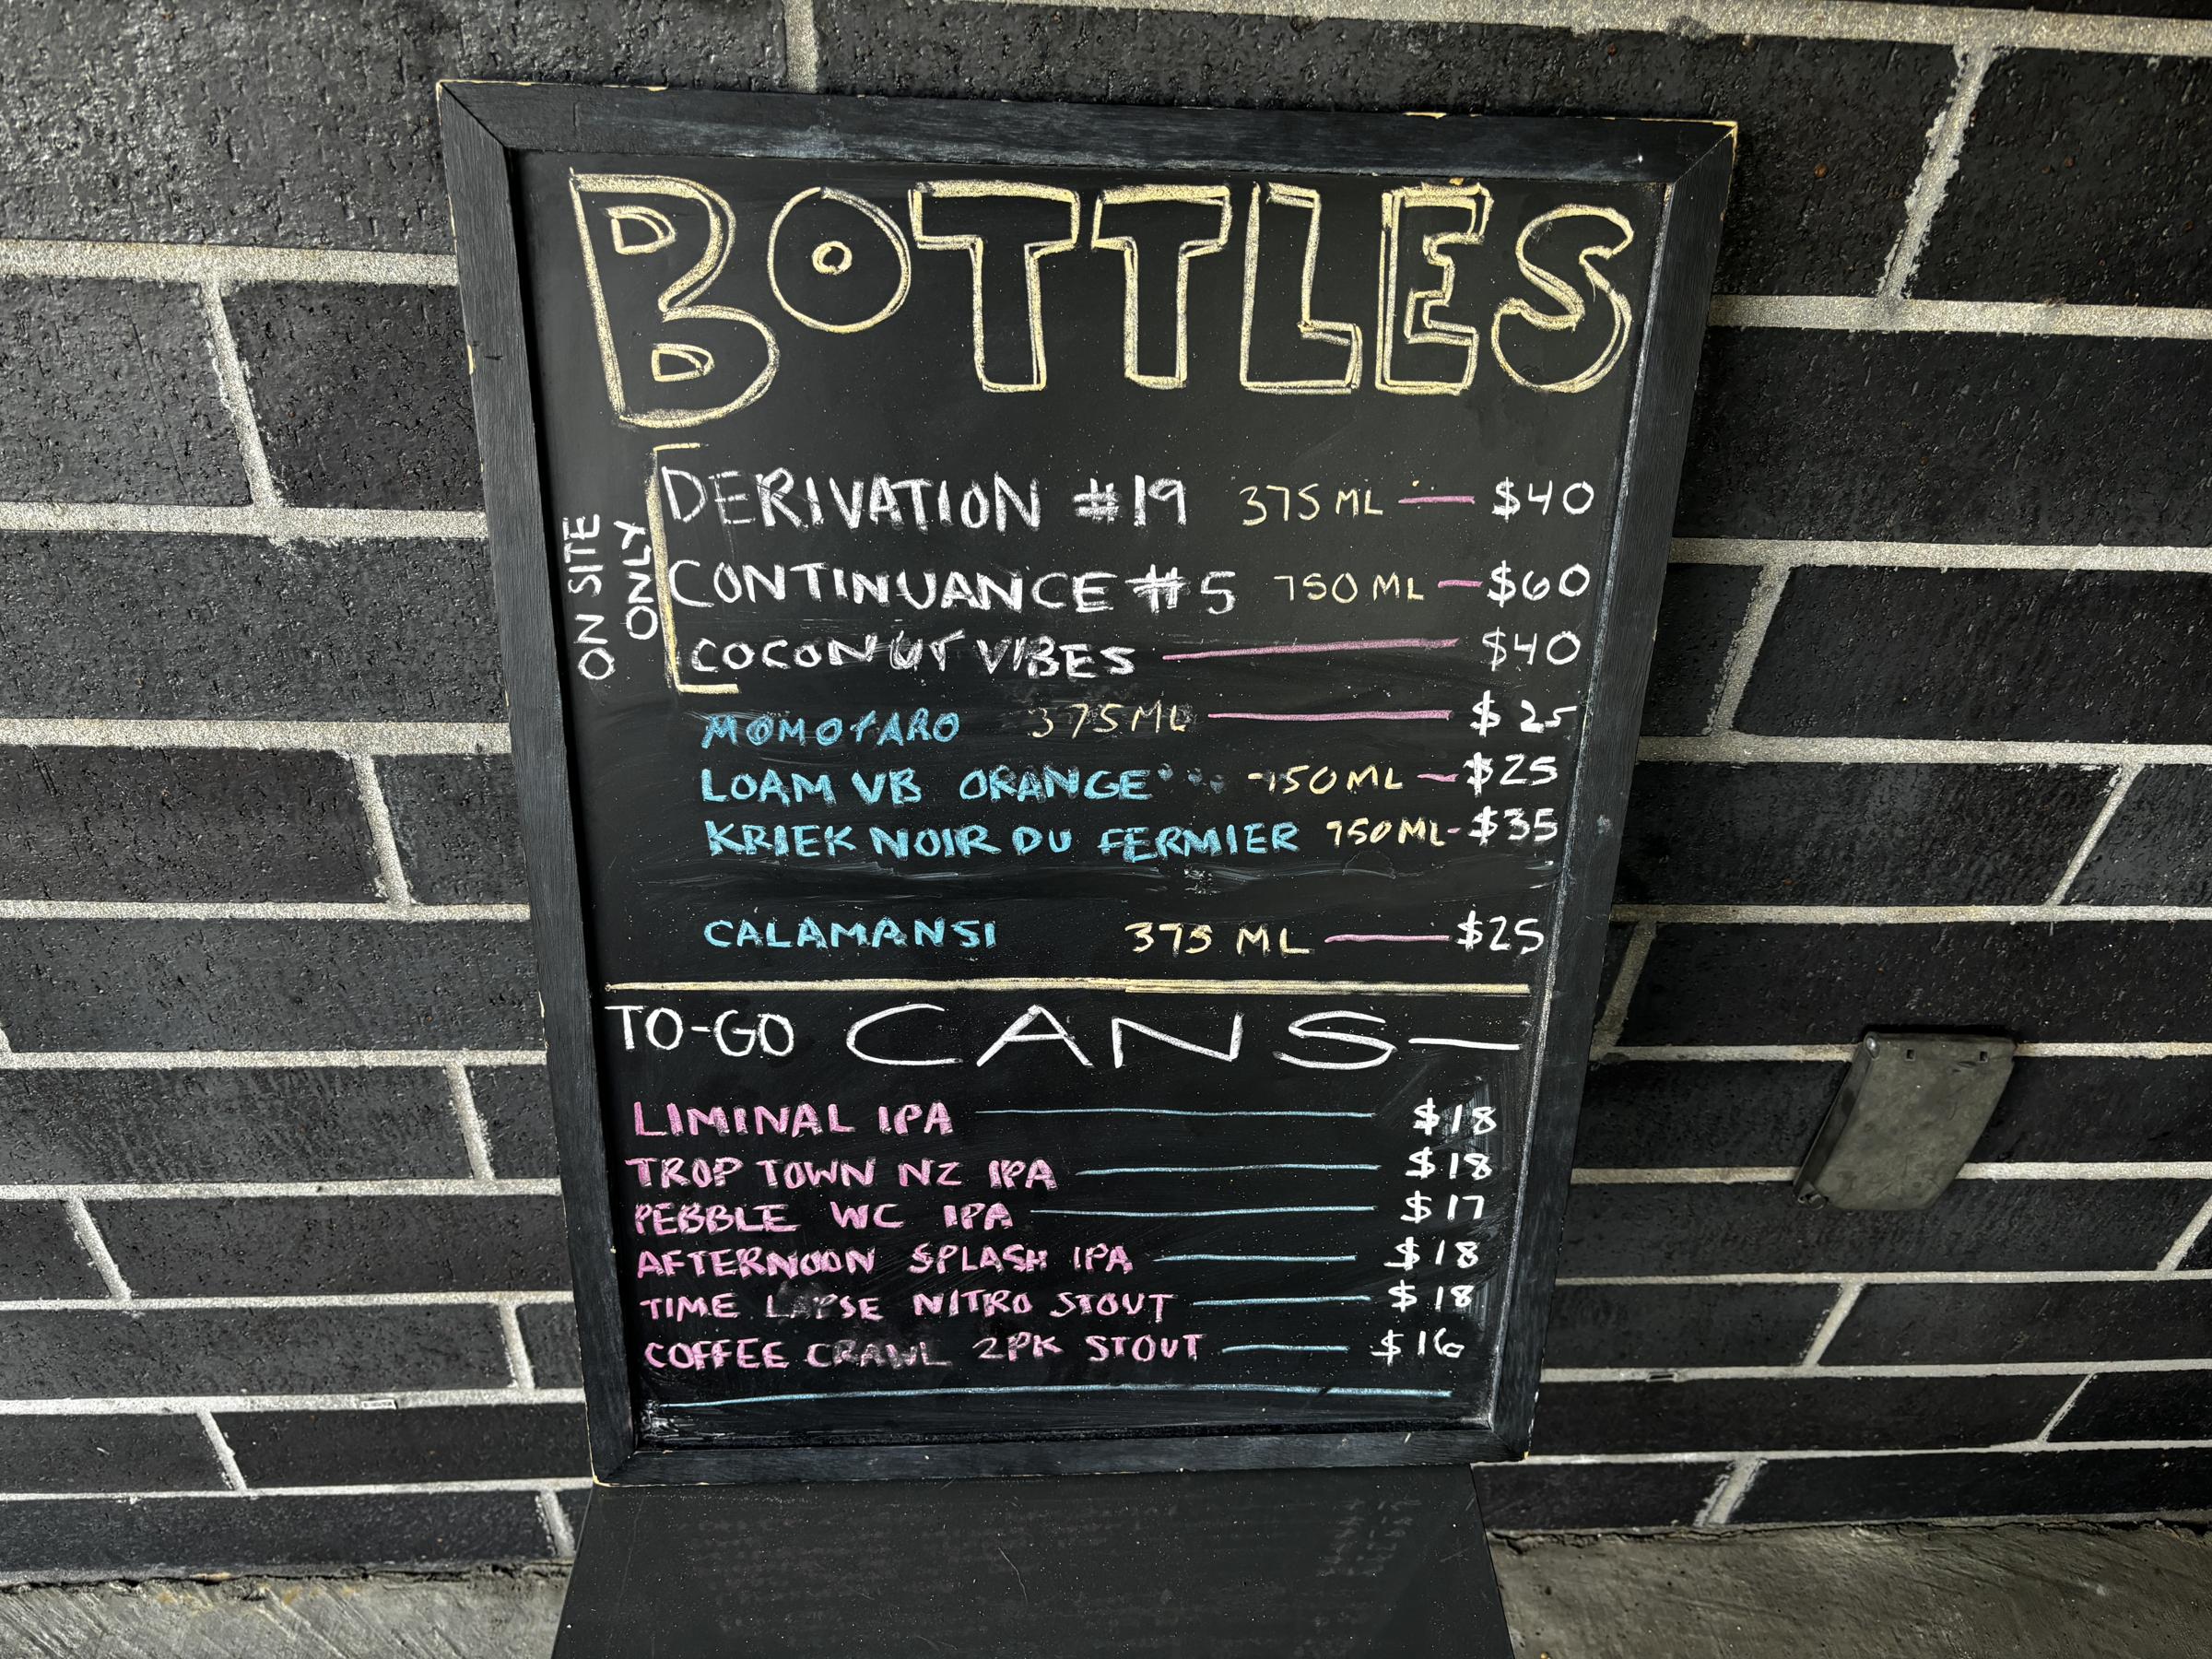 BOTTLES
ON SITE
ONLY
DERIVATION #19 375 ML — $40
CONTINUANCE #5 750 ML — $60
COCONUT VIBES — $40
MOMOTARO 375 ML — $25
LOAM VB ORANGE 750 ML — $25
KRIEK NOIR DU FERMIER 750 ML - $35
CALAMANSI 375 ML — $25
TO-GO CANS —
LIMINAL IPA — $18
TROP TOWN NZ IPA — $18
PEBBLE WC IPA — $17
AFTERNOON SPLASH IPA — $18
TIME LAPSE NITRO STOUT — $18
COFFEE CRAWL 2PK STOUT — $16